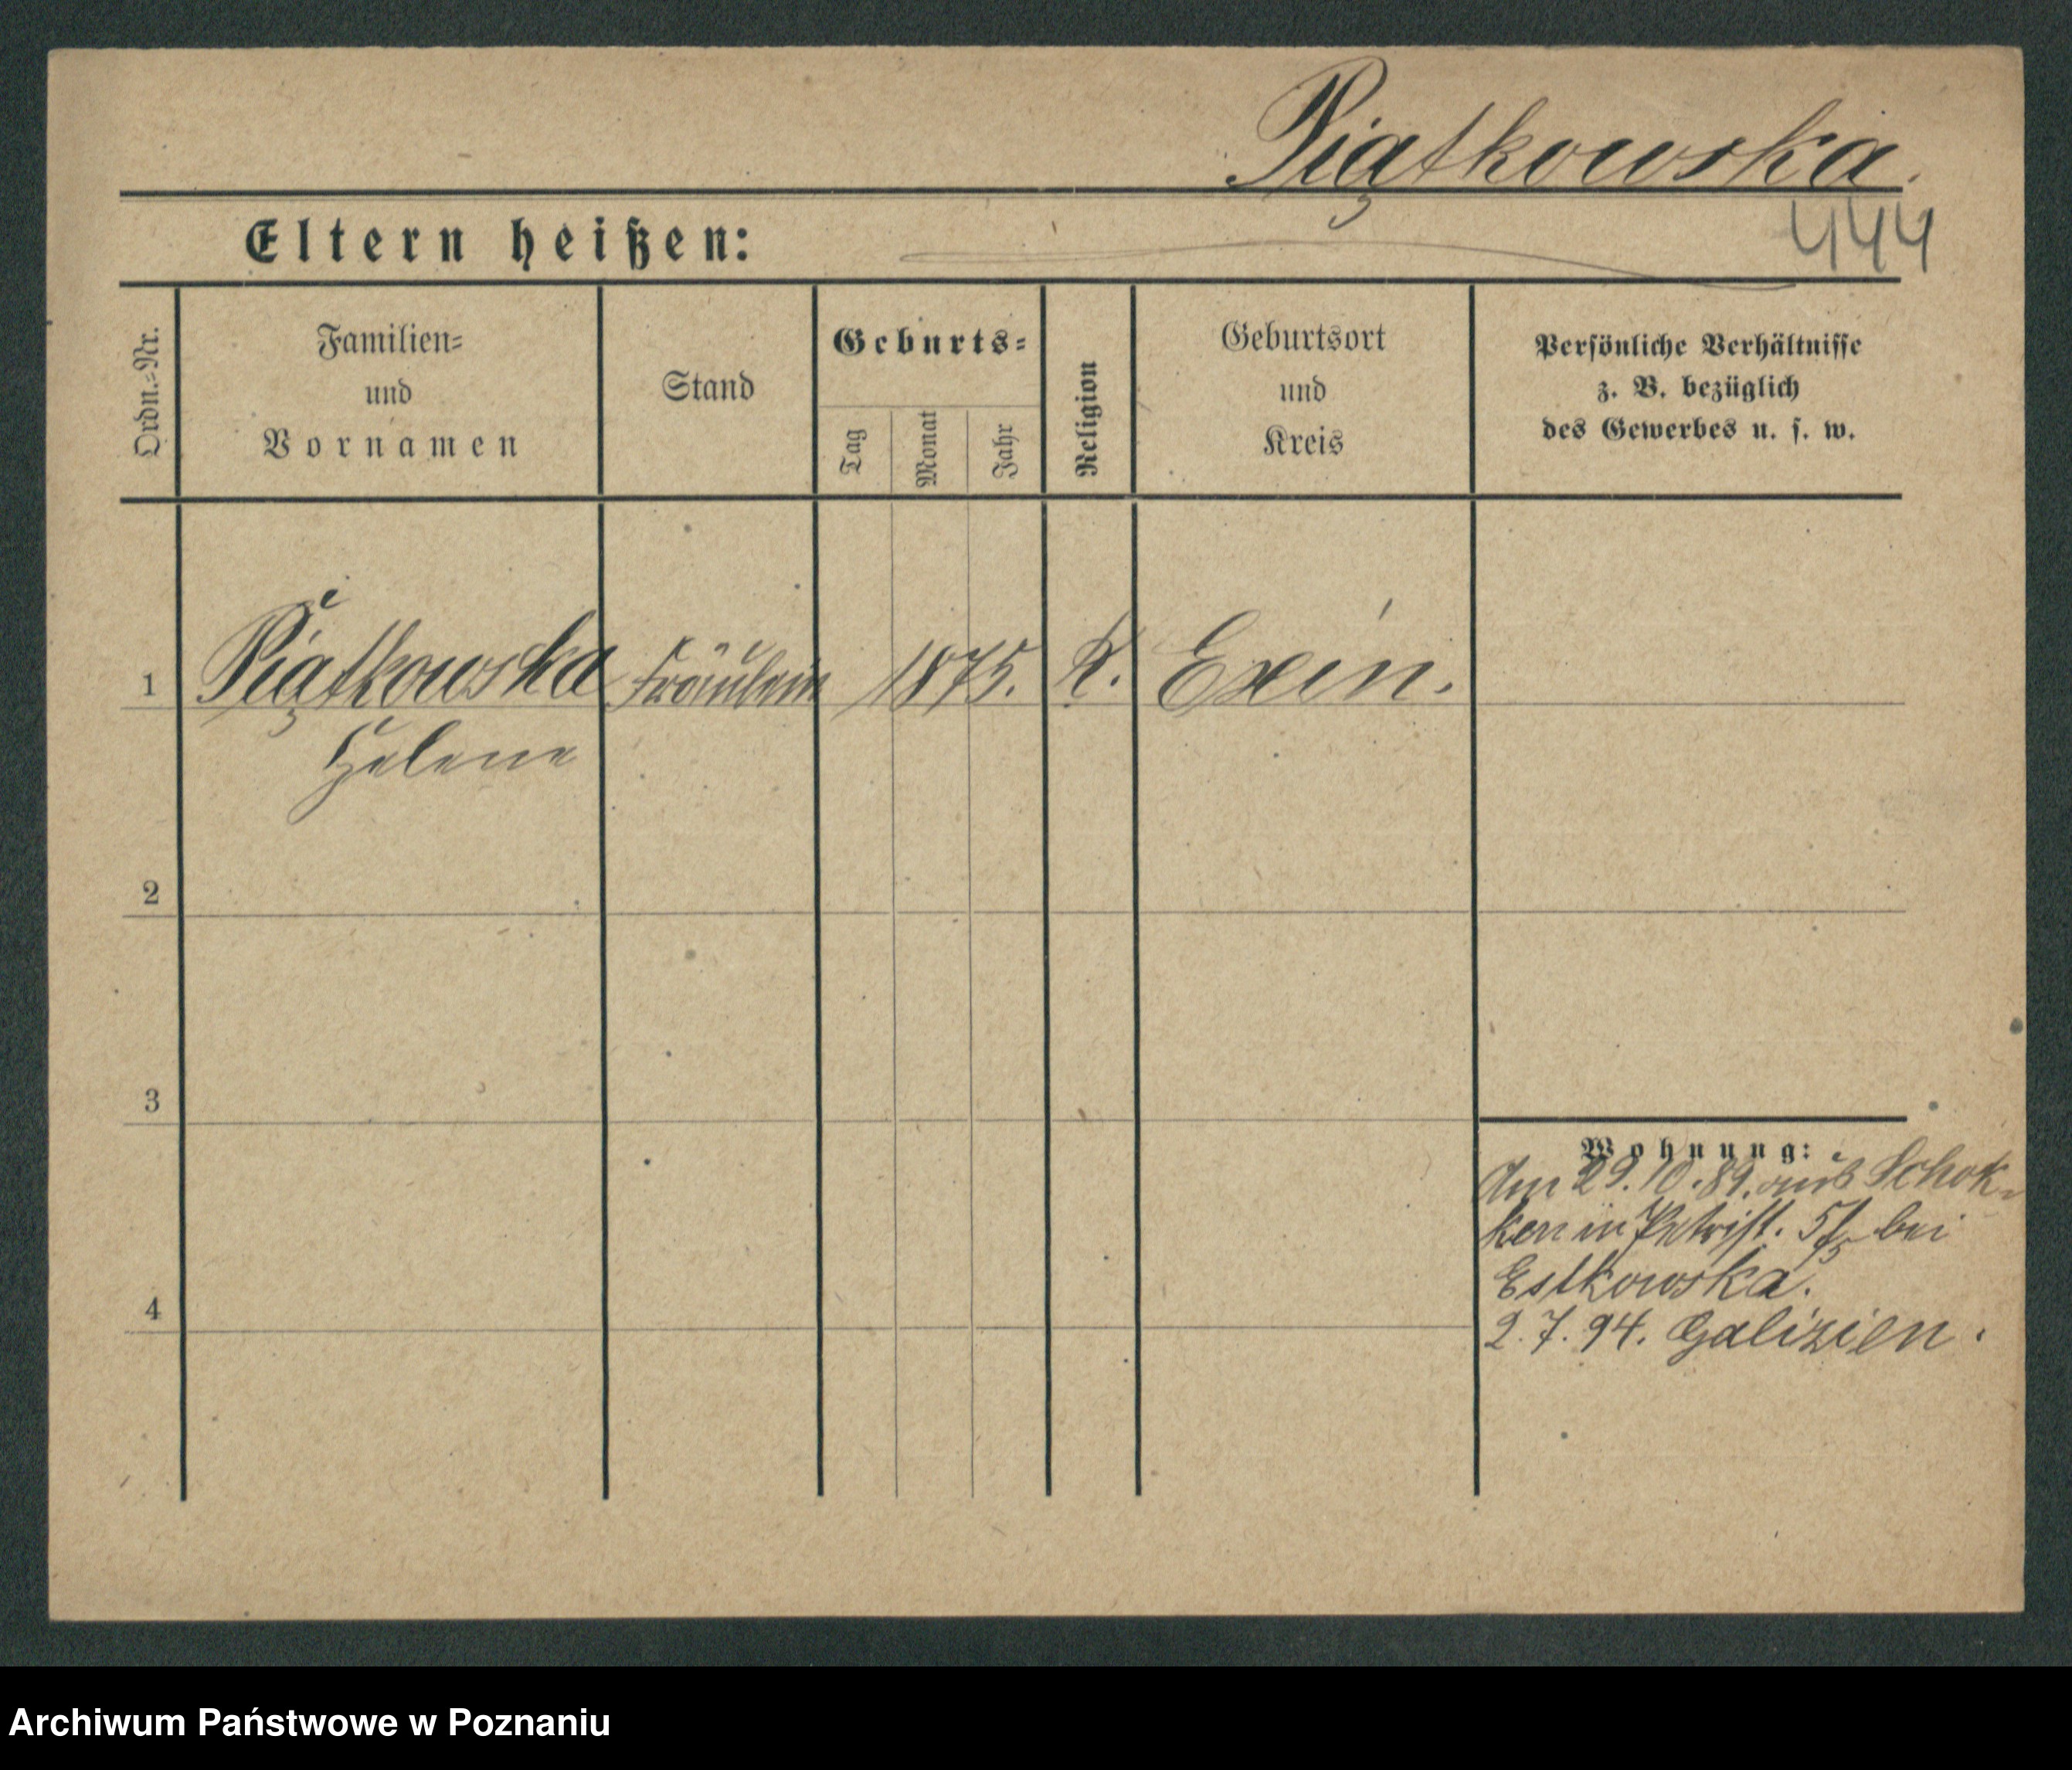 Piątkowska.
444
Eltern heißen:
Ordn.=Nr.
Familien=
und
Vornamen
Stand
Geburts=
Tag
Monat
Jahr
Religion
Geburtsort
und
Kreis
Persönliche Verhältnisse
z. B. bezüglich
des Gewerbes u. s. w.
1 Piątkowska Fräulein 1875. K. Exin.
Helene
2
3
Wohnung:
Am 29.10.89. aus Schok-
ken in Petristr. 5/5 bei
Estkowska.
4
2.7.94. Galizien.
Archiwum Państwowe w Poznaniu